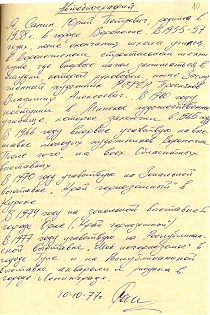 Автобиография
10
Я, Сапин Юрий Петрович, родился в
1938 г. в городе Воронеже. В 1955-57
году,
в Воронежском
году, где впервые начал заниматься в
студии, которой руководил
художник РСФСР
Владимир Алексеевич. В 1960 году
поступил в Минское художественное
училище, которое закончил в 1965 году
В 1966 году впервые участвовал на вы-
ставке молодых художников Воронежа
После того, на всех областных
выставках
В 1970 году участвовал на зональной
выставке "Край черноземный" в
Курске
В 1974 году на зональной выставке в
городе Орле "Край черноземный"
В 1977 году участвовал на Республикан-
ской выставке "Моё Нечерноземье" в
городе Туле и на Республиканской
выставке акварели и рисунка в
городе Ленинграде.
10-10-77г.